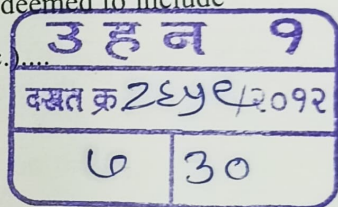 deemed to include
.)....
उ ह न १
दस्त क्र २६५९/२०१२
७ ३०